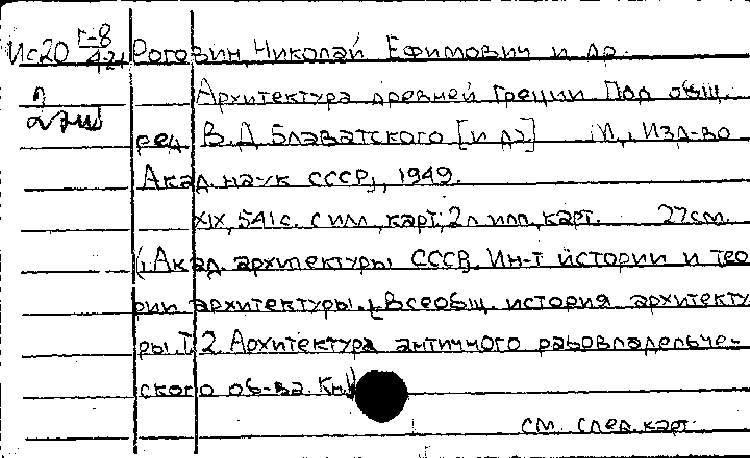 Ис20 Г-8 Роговин, Николай Ефимович и др.
421
Архитектура древней Греции Под общ.
2 экз
ред. В.Д. Блаватского [и др] М., Изд-во
Акад. наук СССР, 1949.
XIX, 541 с. с илл., карт; 2 л илл., карт. 27см.
(Акад. архитектуры СССР. Ин-т истории и тео
рии архитектуры. Всеобщ. история архитекту
ры. Т.2. Архитектура античного рабовладельче-
ского об-ва. Кн.
см. след. карт.